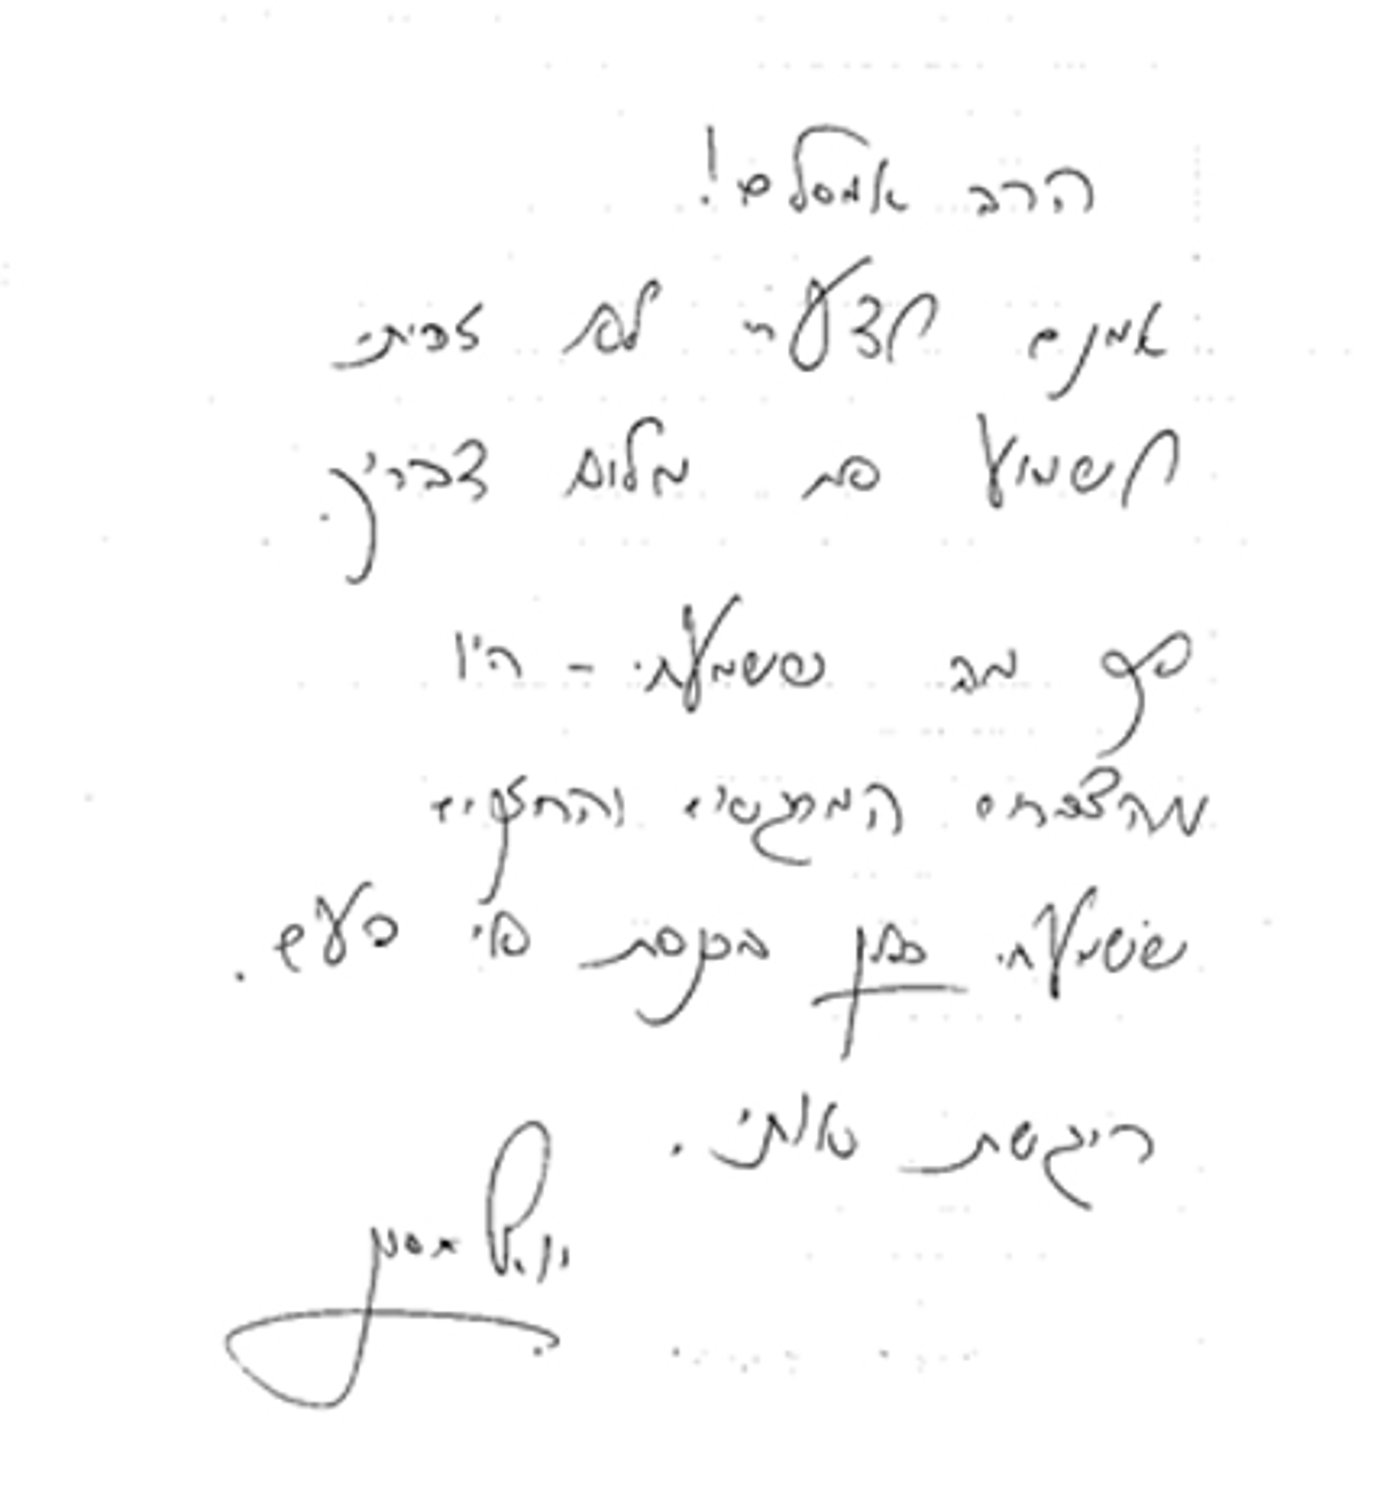 הרב אמסלם!
אמנם לצערי לא זכיתי
לשמוע את מלוא דבריך.
אך מה ששמעתי - היו
מהדברים המרגשים והחזקים
ששמעתי כאן בכנסת אי פעם.
ריגשת אותי.